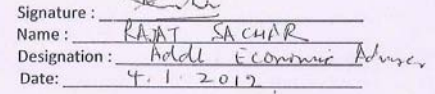 Signature :
Name : RAJAT SACHAR
Designation : Addl Economic Adviser
Date: 4.1.2019